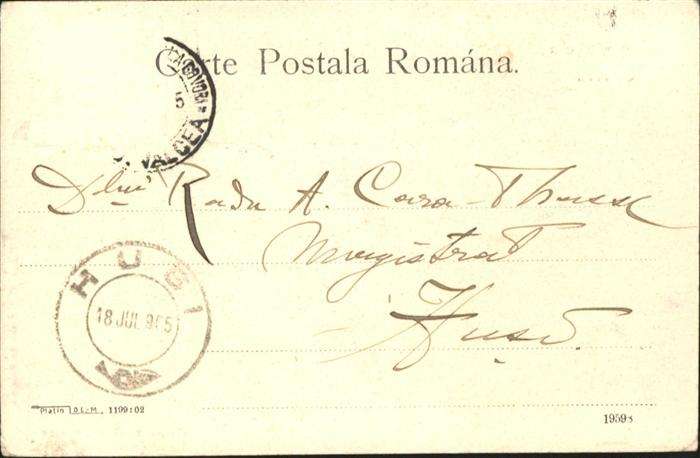 Carte Postala Románа.
VALCEA
Dlui Radu A. Cara-
Magistrat
Husi
HUSI
18 JUL 905
Platin D.L-M, 1199:02
1959